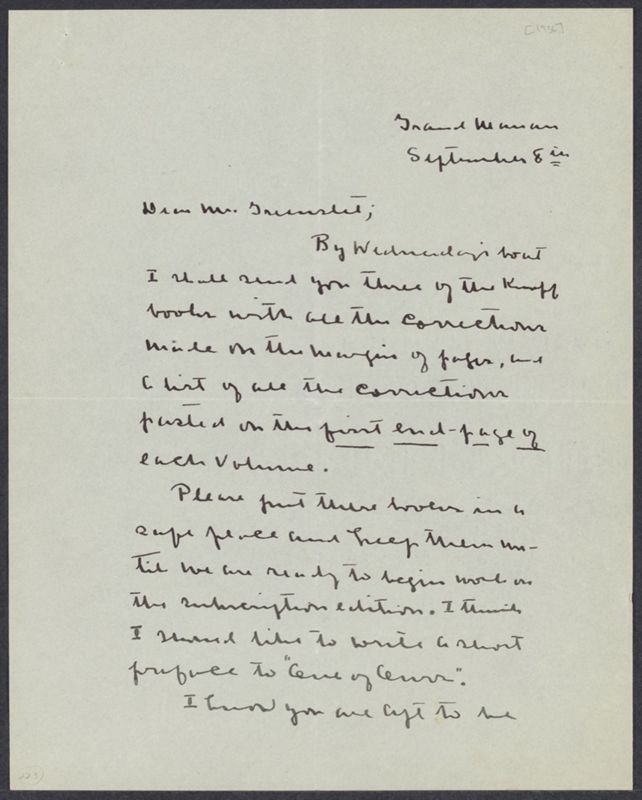 [1936]
Grand Manan
September 8th
Dear Mr. Greenslet;
By Wednesday's boat
I shall send you three of the Knopf
books with all the corrections
made on the margin of pages, and
a list of all the corrections
pasted on the first end-page of
each volume.
Please put these books in a
safe place and keep them un-
til we are ready to begin work on
the subscription edition. I think
I should like to write a short
preface to "One of Ours".
I know you are apt to be